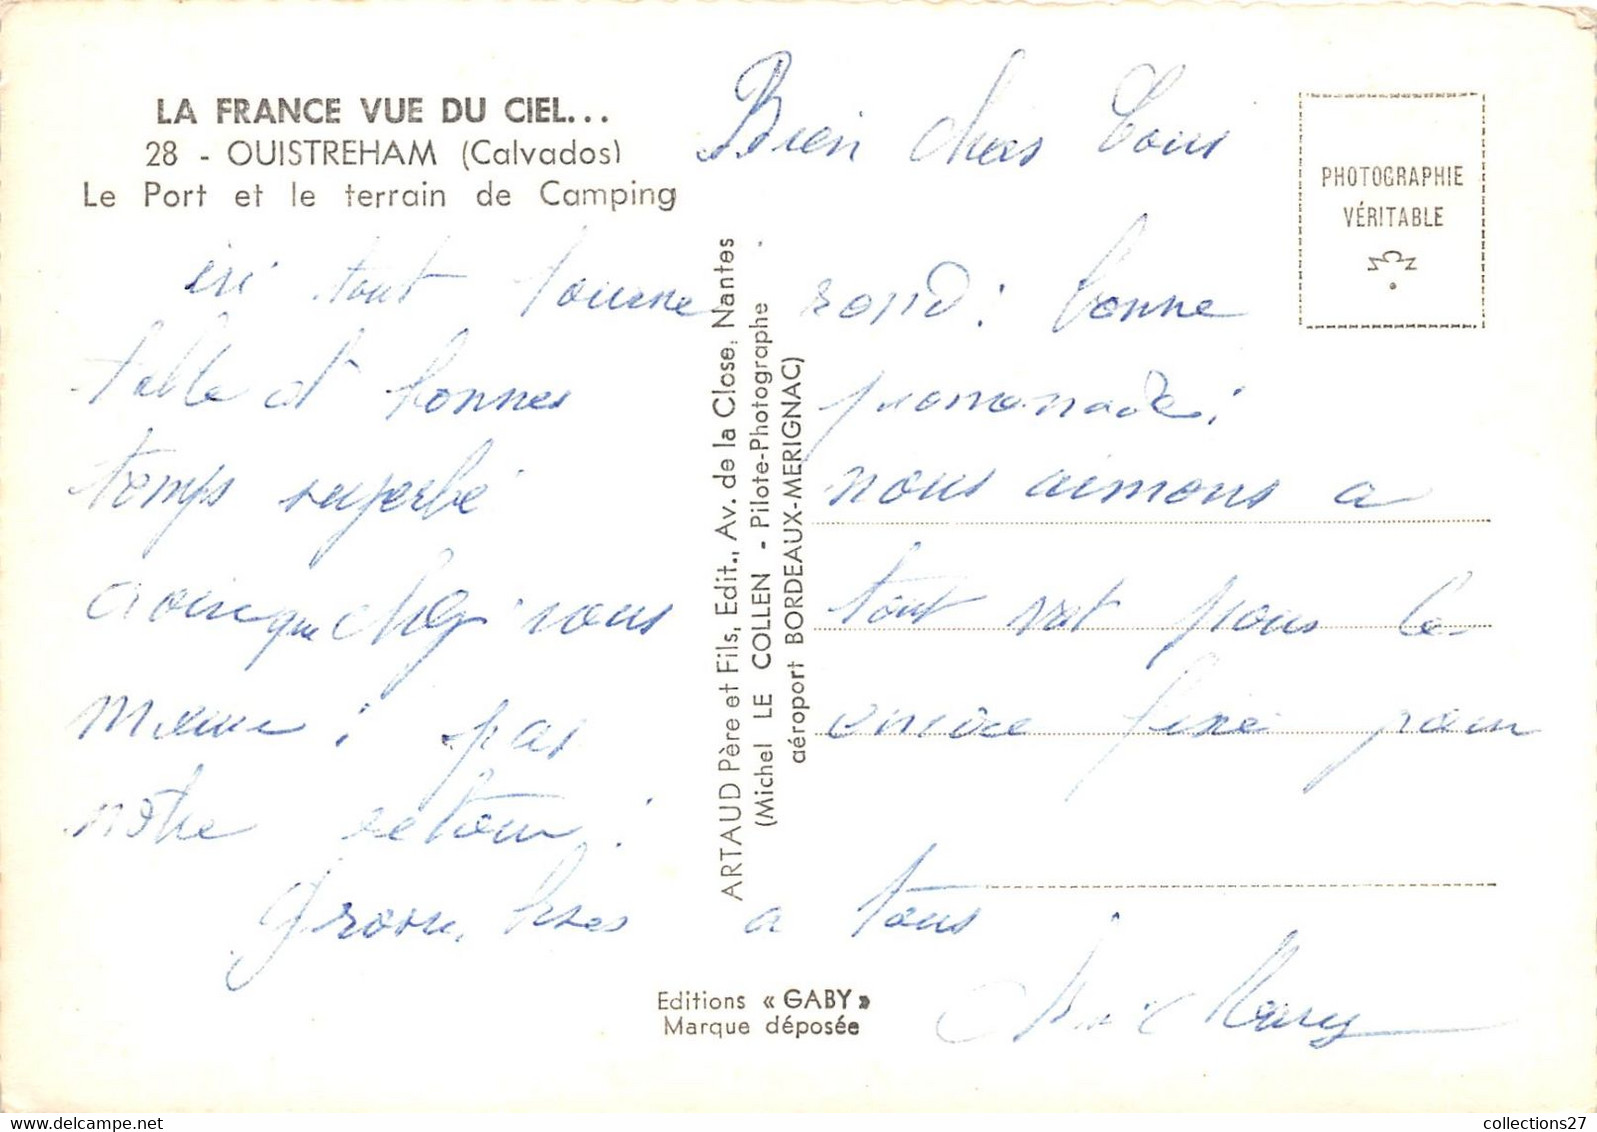 LA FRANCE VUE DU CIEL...
28 - OUISTREHAM (Calvados)
Le Port et le terrain de Camping
PHOTOGRAPHIE
VÉRITABLE
Bien chers Tous
ici tout tourne rond : bonne
table et bonnes promenades ;
temps superbe nous aimons a
vous tout pour le
meme ; pas encore fixé pour
notre retour :
Grosses bises a tous
Mary
ARTAUD Père et Fils, Edit., Av. de la Close, Nantes
(Michel LE COLLEN - Pilote-Photographe
aéroport BORDEAUX-MERIGNAC)
Editions « GABY »
Marque déposée
collections27